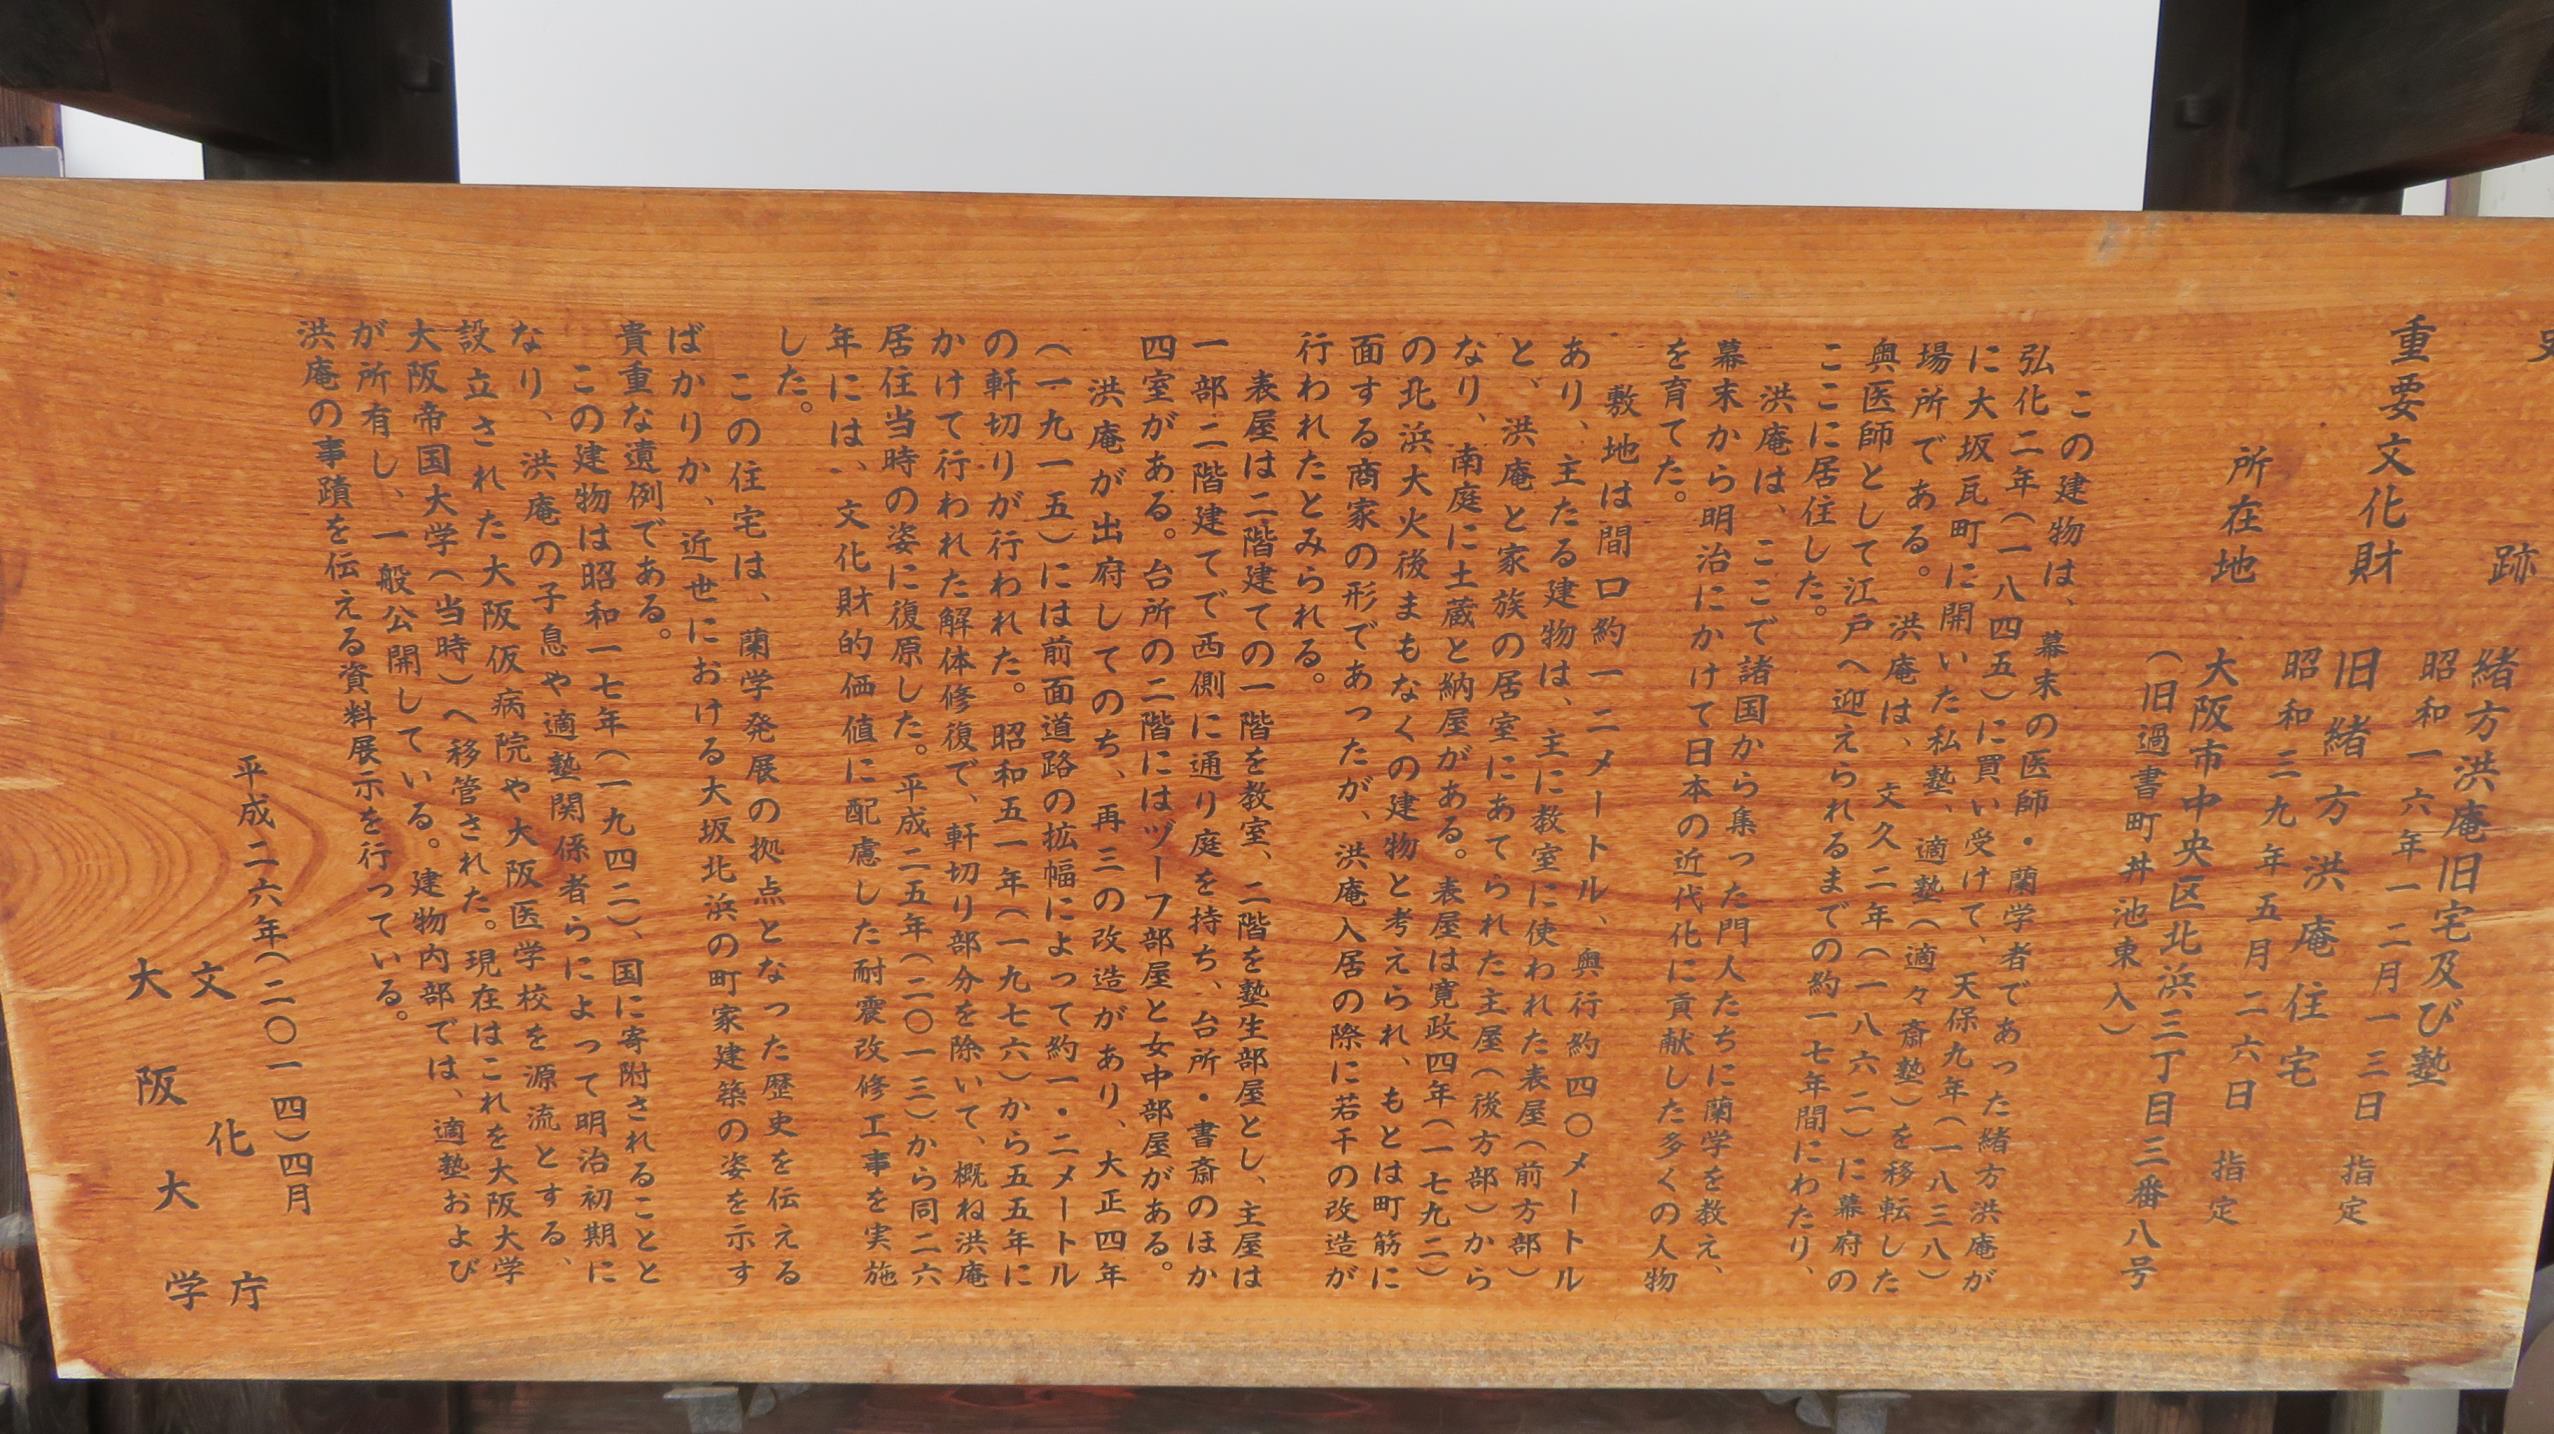 史　跡　緒方洪庵旧宅及び塾
昭和一六年一二月一三日　指定
重要文化財　旧緒方洪庵住宅
昭和三九年五月二六日　指定
所在地　大阪市中央区北浜三丁目三番八号
（旧過書町丼池東入）
この建物は、幕末の医師・蘭学者であった緒方洪庵が
弘化二年（一八四五）に買い受けて、天保九年（一八三八）
に大坂瓦町に開いた私塾、適塾（適々斎塾）を移転した
場所である。洪庵は、文久二年（一八六二）に幕府の
奥医師として江戸へ迎えられるまでの約一七年間にわたり、
ここに居住した。
洪庵は、ここで諸国から集った門人たちに蘭学を教え、
幕末から明治にかけて日本の近代化に貢献した多くの人物
を育てた。
敷地は間口約一二メートル、奥行約四〇メートル
あり、主たる建物は、主に教室に使われた表屋（前方部）
と、洪庵と家族の居室にあてられた主屋（後方部）から
なり、南庭に土蔵と納屋がある。表屋は寛政四年（一七九二）
の北浜大火後まもなくの建物と考えられ、もとは町筋に
面する商家の形であったが、洪庵入居の際に若干の改造が
行われたとみられる。
表屋は二階建ての一階を教室、二階を塾生部屋とし、主屋は
一部二階建てで西側に通り庭を持ち、台所・書斎のほか
四室がある。台所の二階にはヅーフ部屋と女中部屋がある。
洪庵が出府してのち、再三の改造があり、大正四年
（一九一五）には前面道路の拡幅によって約一・二メートル
の軒切りが行われた。昭和五一年（一九七六）から五五年に
かけて行われた解体修復で、軒切り部分を除いて、概ね洪庵
居住当時の姿に復原した。平成二五年（二〇一三）から同二六
年には、文化財的価値に配慮した耐震改修工事を実施
した。
この住宅は、蘭学発展の拠点となった歴史を伝える
ばかりか、近世における大坂北浜の町家建築の姿を示す
貴重な遺例である。
この建物は昭和一七年（一九四二）、国に寄附されることと
なり、洪庵の子息や適塾関係者らによって明治初期に
設立された大阪仮病院や大阪医学校を源流とする、
大阪帝国大学（当時）へ移管された。現在はこれを大阪大学
が所有し、一般公開している。建物内部では、適塾および
洪庵の事蹟を伝える資料展示を行っている。
平成二六年（二〇一四）四月
文化庁
大阪大学